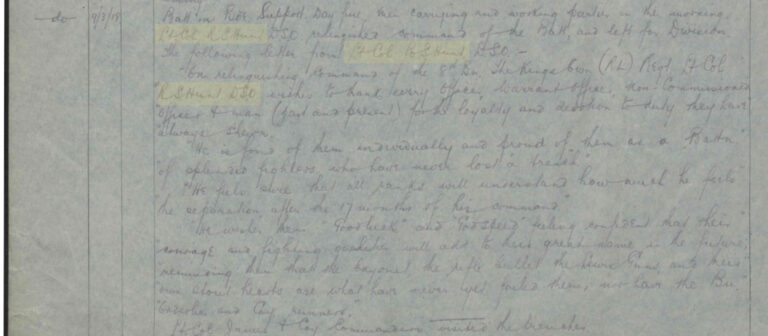 do 9/3/18
Batt'n Res. Support. Day fine, men carrying and working parties in the morning.
Lt Col R S Hunt DSO relinquished command of the Batt. and left for Division
The following letter from Lt Col R S Hunt DSO —
"On relinquishing command of the 8th Bn. The Kings Own (RL) Regt, Lt Col
"R S Hunt DSO wishes to thank every Officer, Warrant Officer, Non-Commissioned
"Officer & man (past and present) for the loyalty and devotion to duty they have
"always shewn.
"He is proud of them individually and proud of them as a Battn"
"of splendid fighters, who have never lost a trench"
"He feels sure that all ranks will understand how much he feels"
"the separation after the 17 months of his command"
"He wishes them 'Good luck' and 'God speed' feeling confident that their"
"courage and fighting qualities will add to their great name in the future"
"reminding them that the bayonet the rifle bullet the Lewis Guns, and their"
"own stout hearts are what have never yet failed them, nor have the Bn."
"and Coy runners."
Lt Col & Coy Commanders visited the trenches